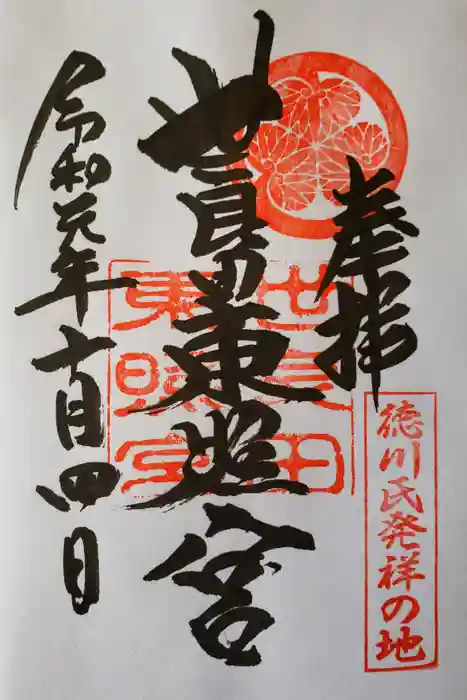 奉拝
徳川氏発祥の地
世良田東照宮
世良田
東照宮
令和元年十月四日